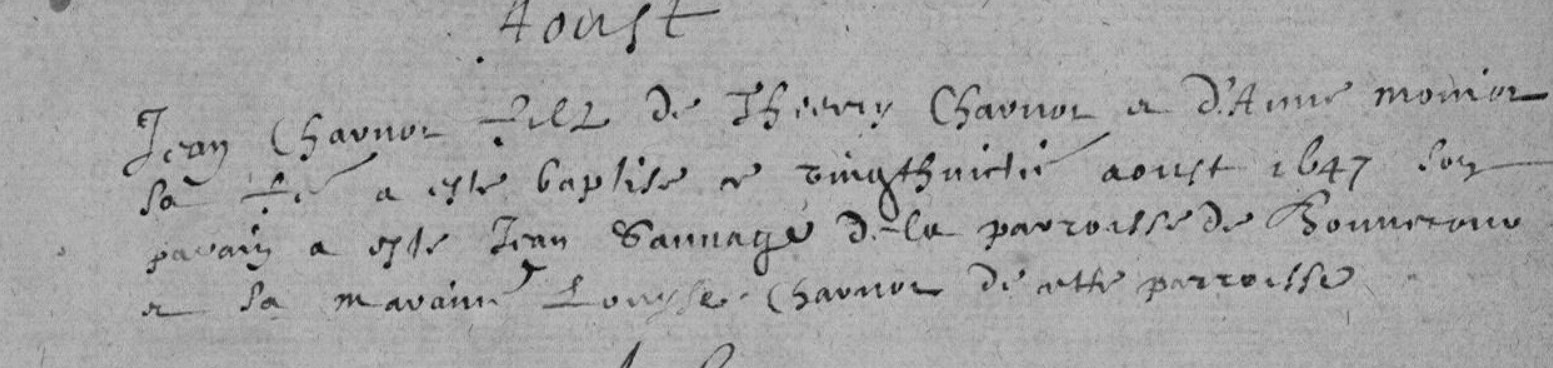 Aoust
Jean Charnot filz de Thierry Charnot et d'Anne moniot
sa fe a este baptise ce vingthuictie aoust 1647 son
parain a este Jean Sauvage de la parroisse de
et sa maraine Louyse Charnot de cette parroisse